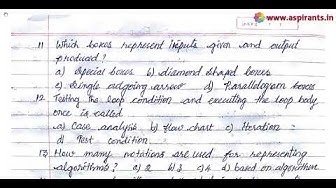 www.aspirants.in
11 Which boxes represent inputs given and output
produced?
a) Special boxes b) diamond shaped boxes
c) Single outgoing arrow d) Parallelogram boxes
12. Testing the loop condition and executing the loop body
once is called
a) Case analysis b) flow chart c) Iteration
d) Test condition
13. How many notations are used for representing
algorithms? a) 2 b) 3 c) 4 d) based on algorithm